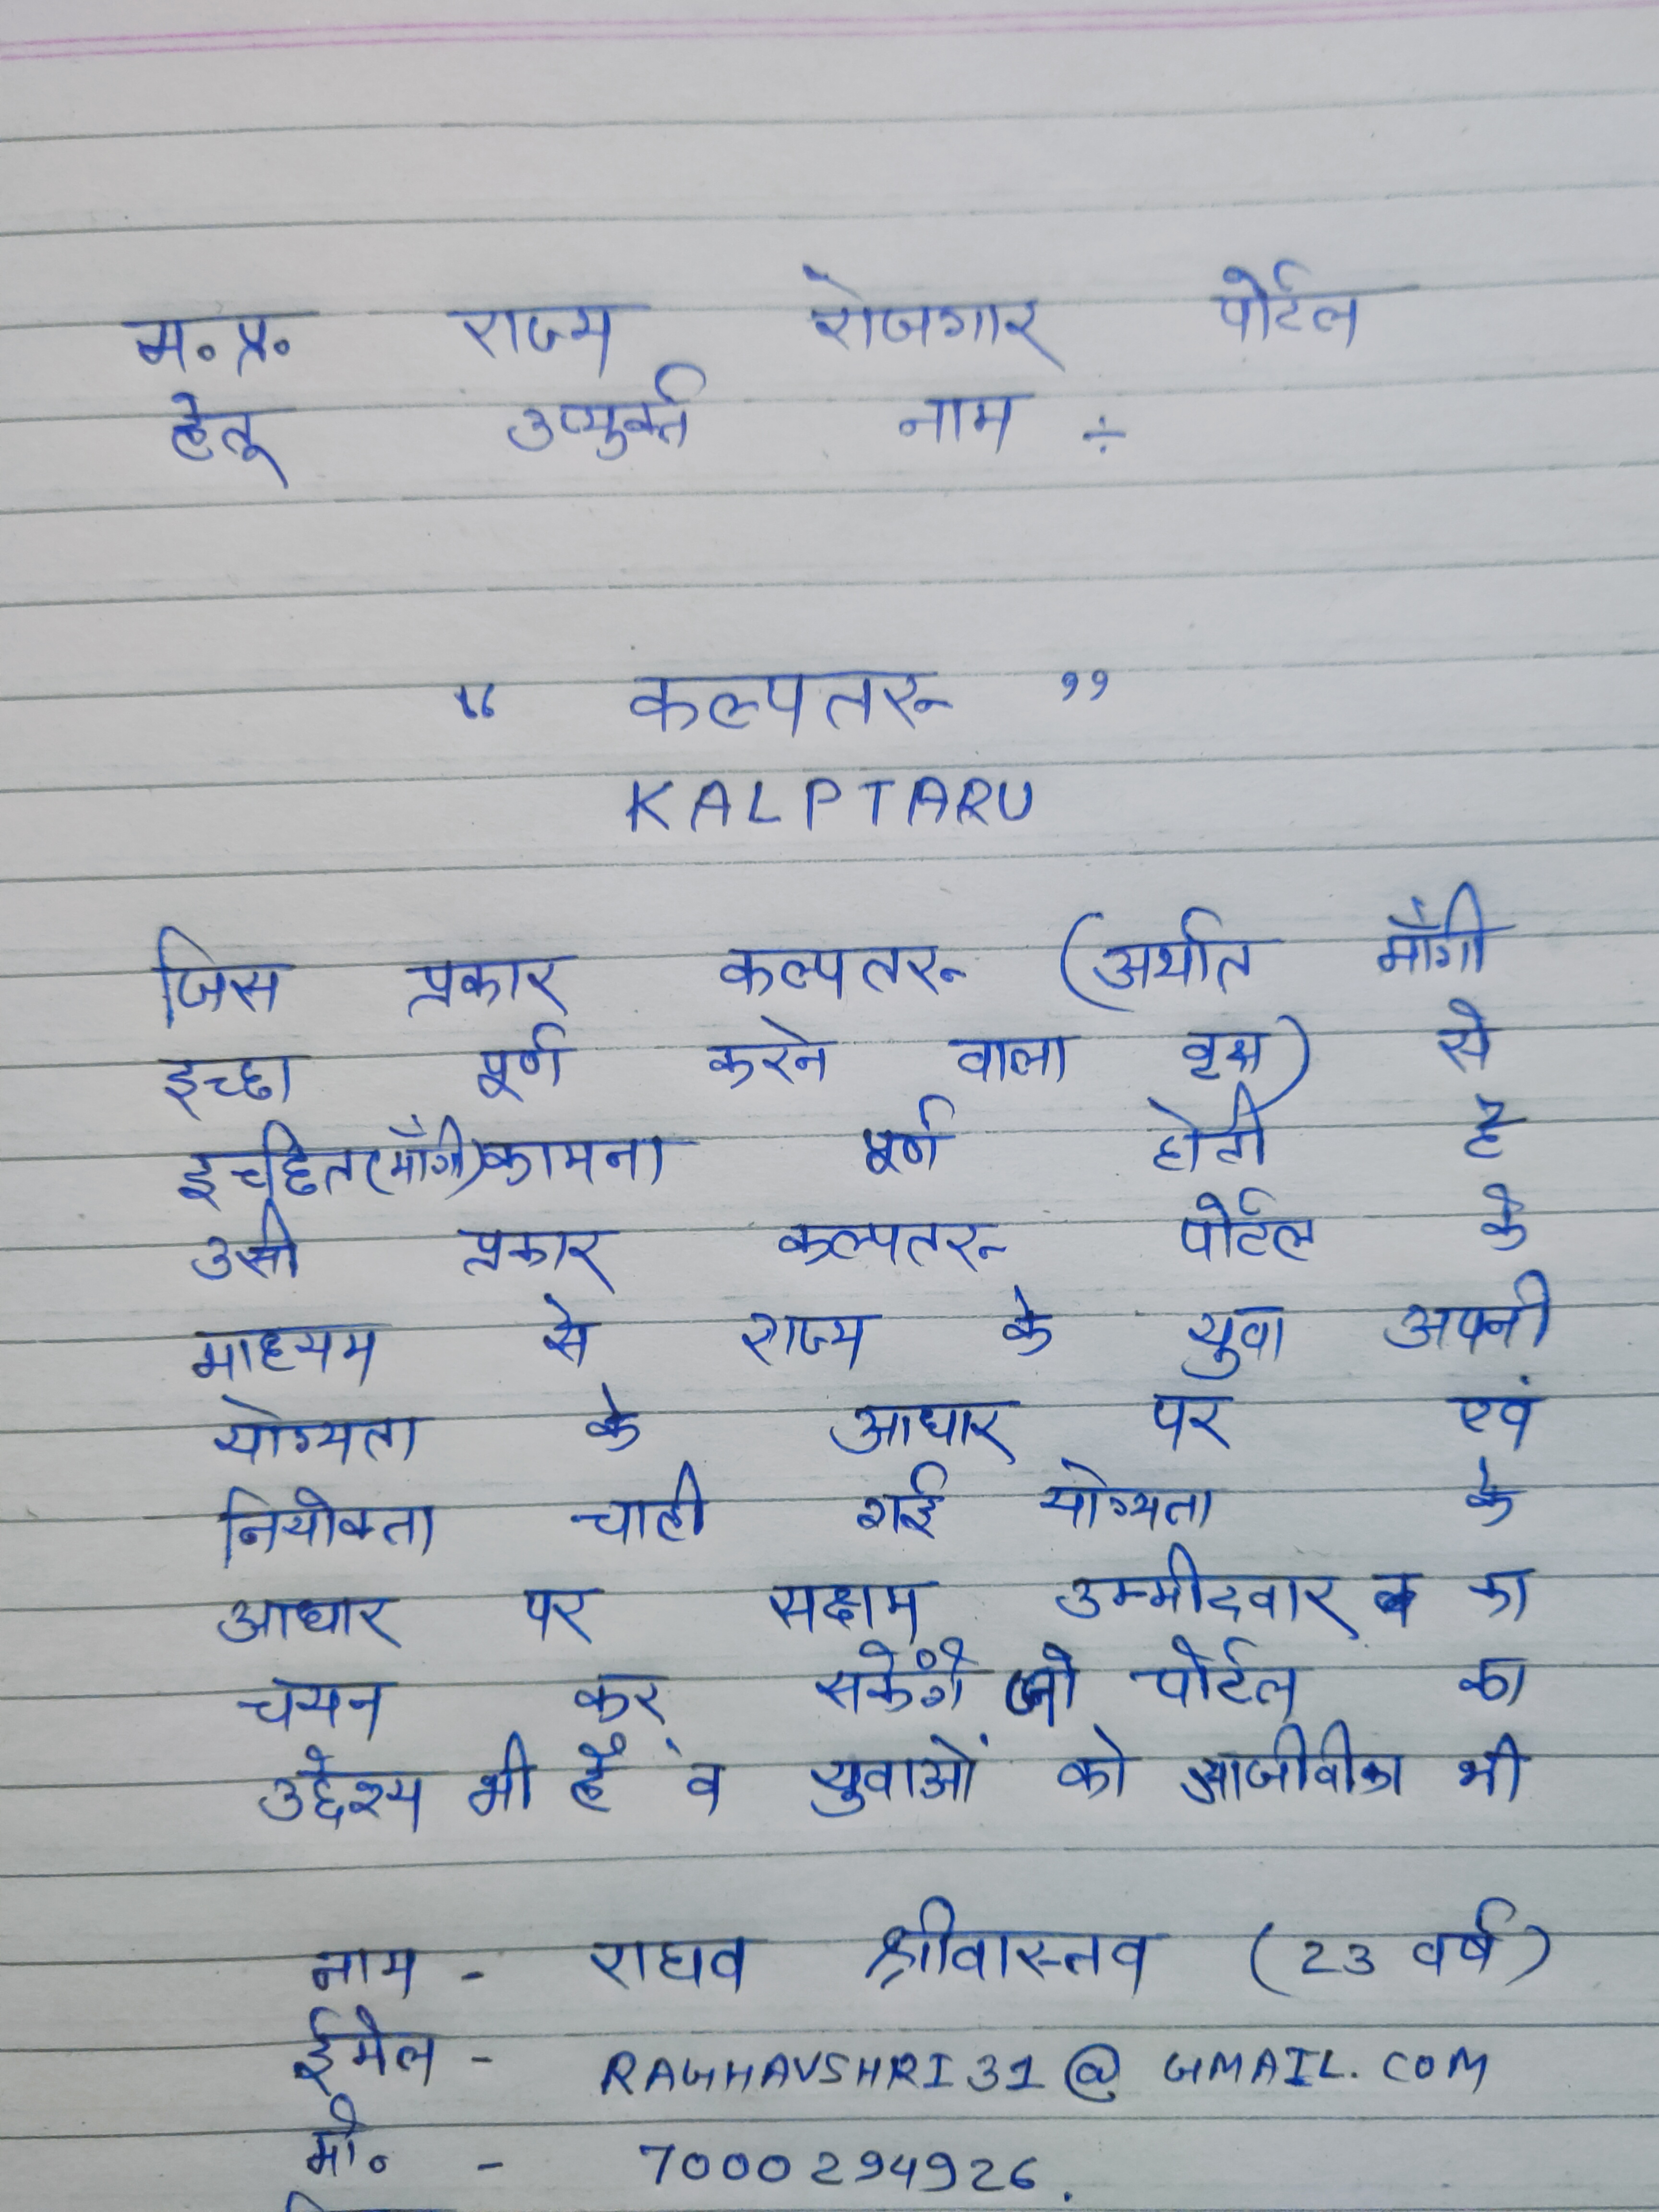 म.प्र. राज्य रोजगार पोर्टल
हेतू उप्युक्त नाम ÷
“ कल्पतरू ”
KALPTARU
जिस प्रकार कल्पतरू (अर्थात माँगी
इच्छा पूर्ण करने वाला वृक्ष) से
इच्छित(माँगी)कामना पूर्ण होती है
उसी प्रकार कल्पतरू पोर्टल के
माध्यम से राज्य के युवा अपनी
योग्यता के आधार पर एवं
नियोक्ता चाही गई योग्यता के
आधार पर सक्षम उम्मीदवार का
चयन कर सकेंगे जो पोर्टल का
उद्देश्य भी है व युवाओं को आजीवीका भी
नाम - राघव श्रीवास्तव (23 वर्ष)
ईमेल - RAGHAVSHRI31@GMAIL.COM
मो. - 7000294926.